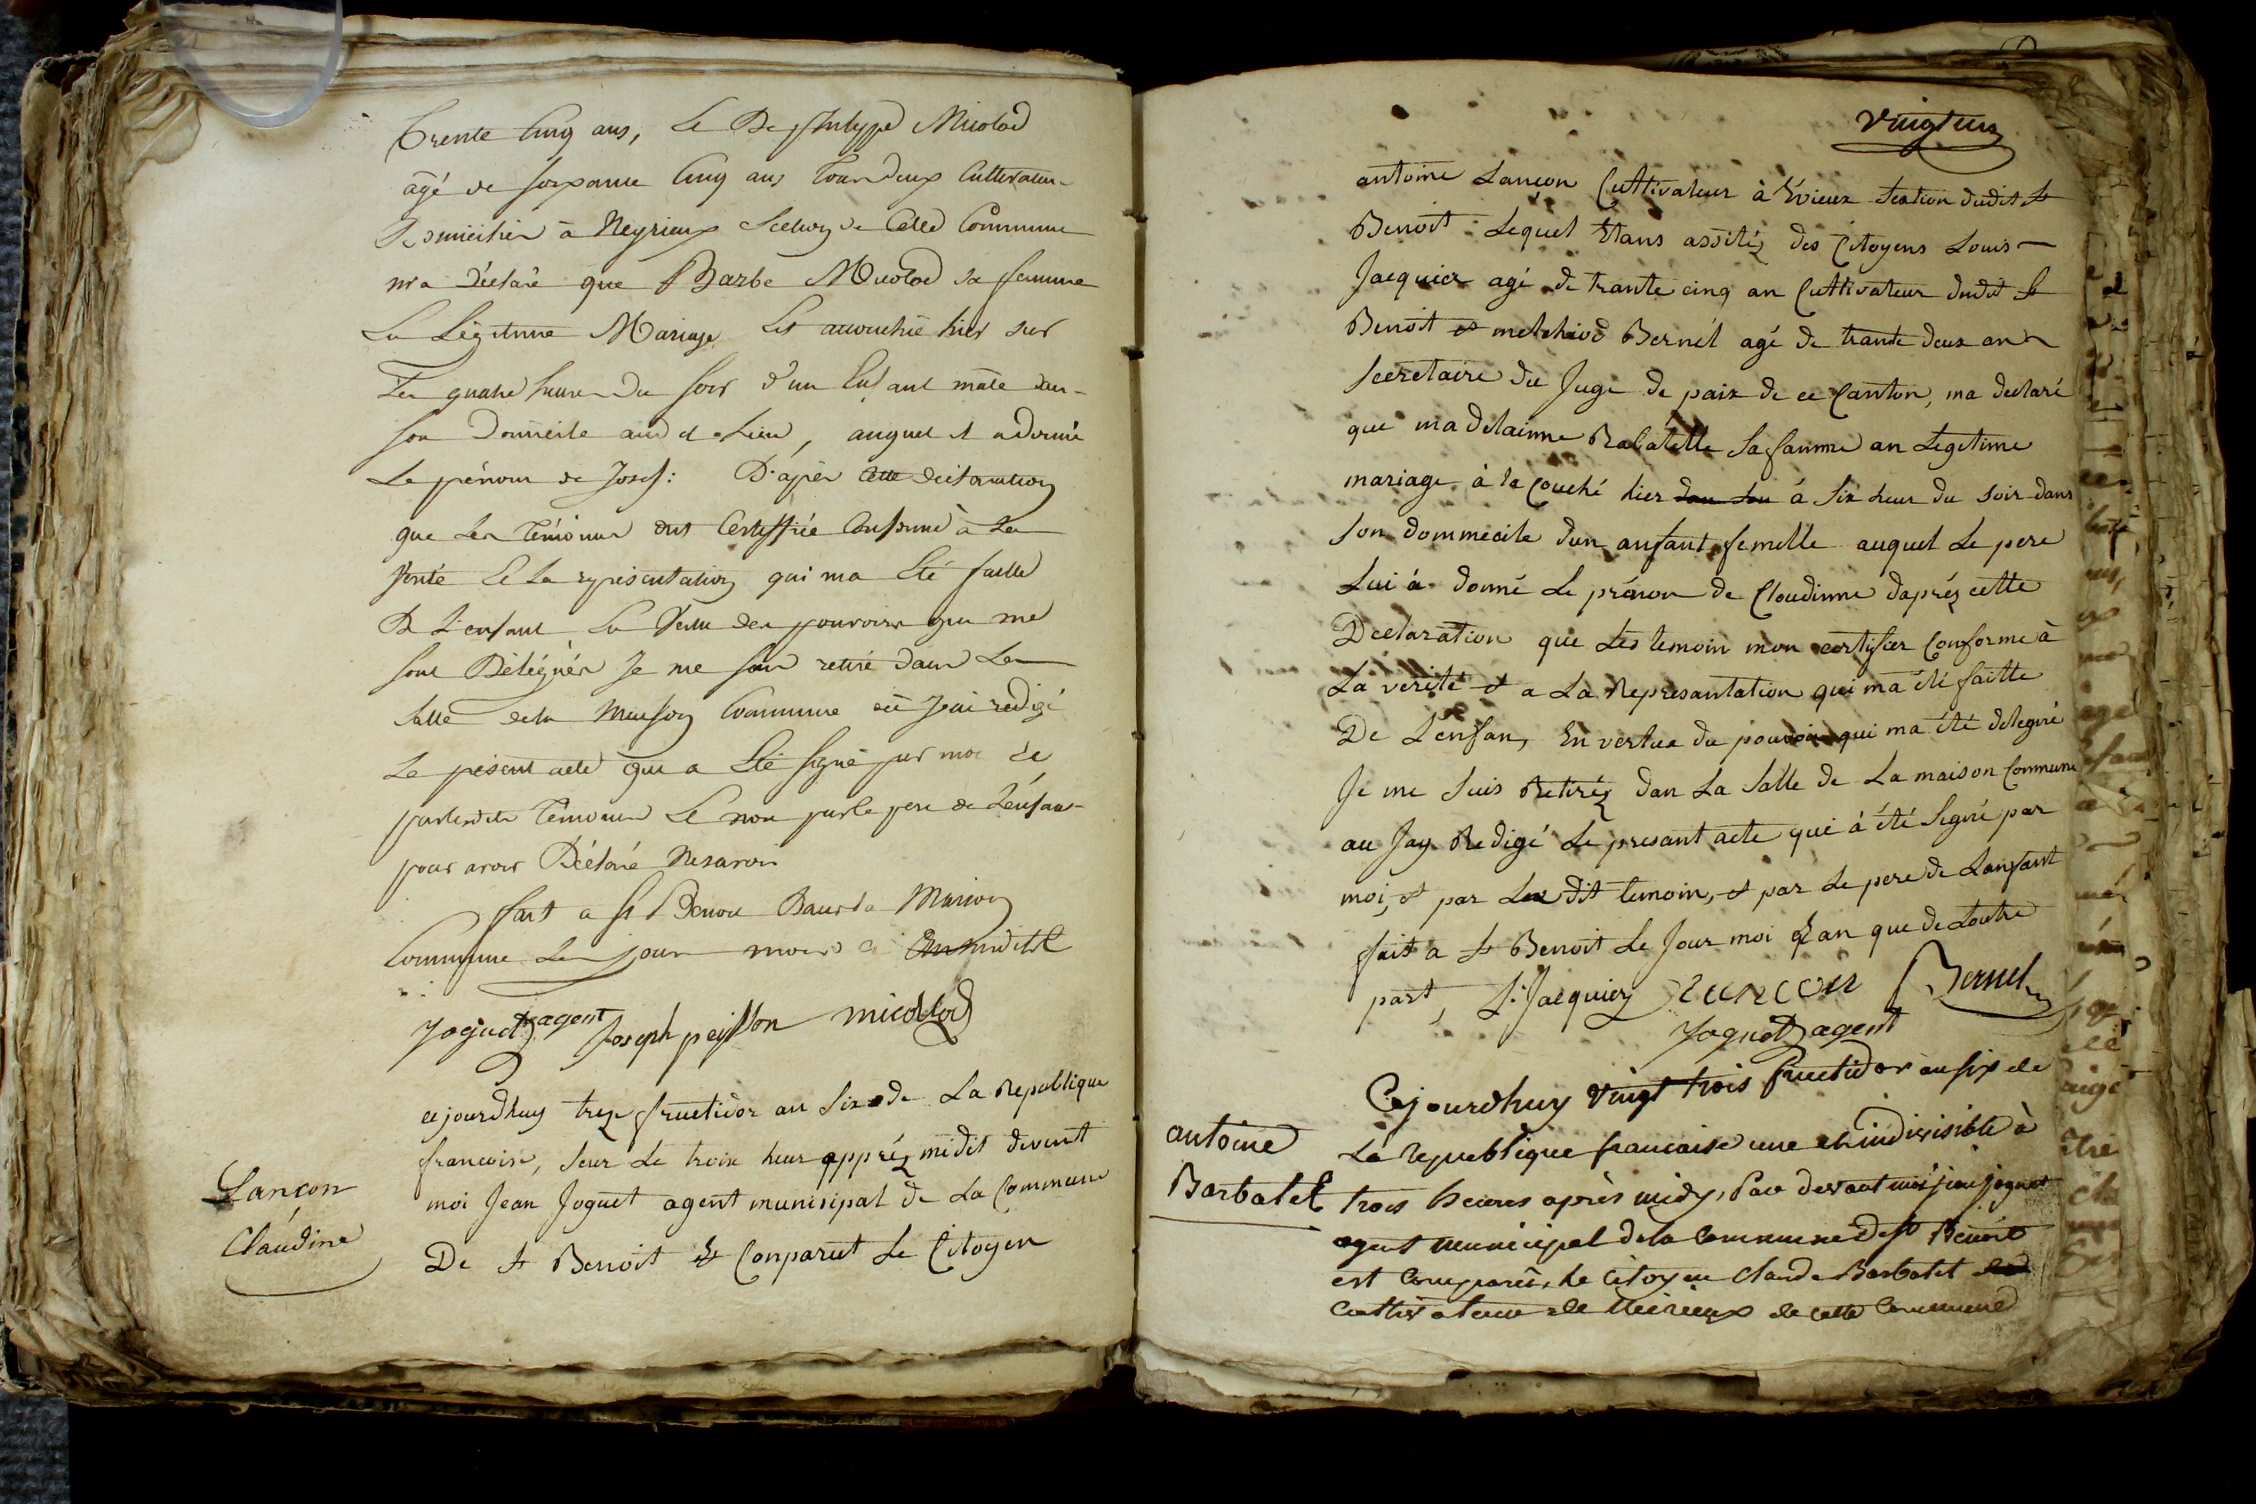 Trente Cinq ans, Le De Micolod
agé de soixante Cinq ans Tous deux Cultivateur
Domicilier à Neyrieux Section de Cette Commune
m'a Déclaré que Barbe Micolod sa femme
En Légitime Mariage Est accouchée hier sur
Les quatre heure Du soir d'un Enfant mâle dans
son Domicile audit Lieu, auquel il a donné
Le prénom de Josef: D'après cette déclaration
que Les Témoins ont Certiffiée Conforme à La
vérité Et La représentation qui ma Eté faitte
De L'enfant En Vertu des pouvoirs qui me
sont Délégués Je me suis retiré dans La
salle de la Maison Commune où J'ai redigé
Le présent acte qui a Eté signé par moi Le
Témoins Et non par le pere de L'enfant
pour avoir Déclaré Ne savoir
fait a St Benoit Dans la Maison
Commune Les jour mois et an susdits
Joguet agent Joseph peysson micollod
cejourdhuy treze fructidor an Six de La Republique
francoise, seur Le troix heur apprés midit devent
Lançon
Claudine
moi Jean Joguet agent munisipal de La Commune
De St Benoit Et Conparut Le Citoyen
vingt un
antoine Lançon Cultivateur à Evieux Section dudit St
Benoit: Lequel Etans assitéz des Citoyens Louis
Jacquier agé de trante cinq an Cultivateur dudit St
Benoit et melchiod Bernél agé de trante deux an
Secretaire du Juge de paix de ce Canton, ma declaré
que madelainne Rabatelle Sa famme an Legetime
mariage à la Couché hier dan son à Six heur du soir dans
son dommécile d'un anfant femelle auquel Le pere
Lui à donné Le prénon de Cloudinne daprés cette
Declaration que Les temoin mon certifier Conforme à
La verité et a La Represantation qui ma été faitte
De L'enfan, En vertue du pouvoir qui ma été delegué
Je me suis Retiréz dan La Salle de La maison Commune
au Jay Redigé Le presant acte qui à été Signé par
moi, et par Les dit temoin, et par Le pere de Lanfant
fait a St Benoit Le Jour moi & an que de Loutre
part, L: Jacquier Lancon Bernel
Joguet agent
Cejourdhuy vingt trois fructidor an six de
antoine
Barbatet
La republique francaise une et indivisible à
trois heures après midy, Par devant moi jean joguet
agent municipal de la Commune de St Benoit
est comparû, Le Citoyen Claude Barbatet
Cultivateur de Neirieux de cette Commune